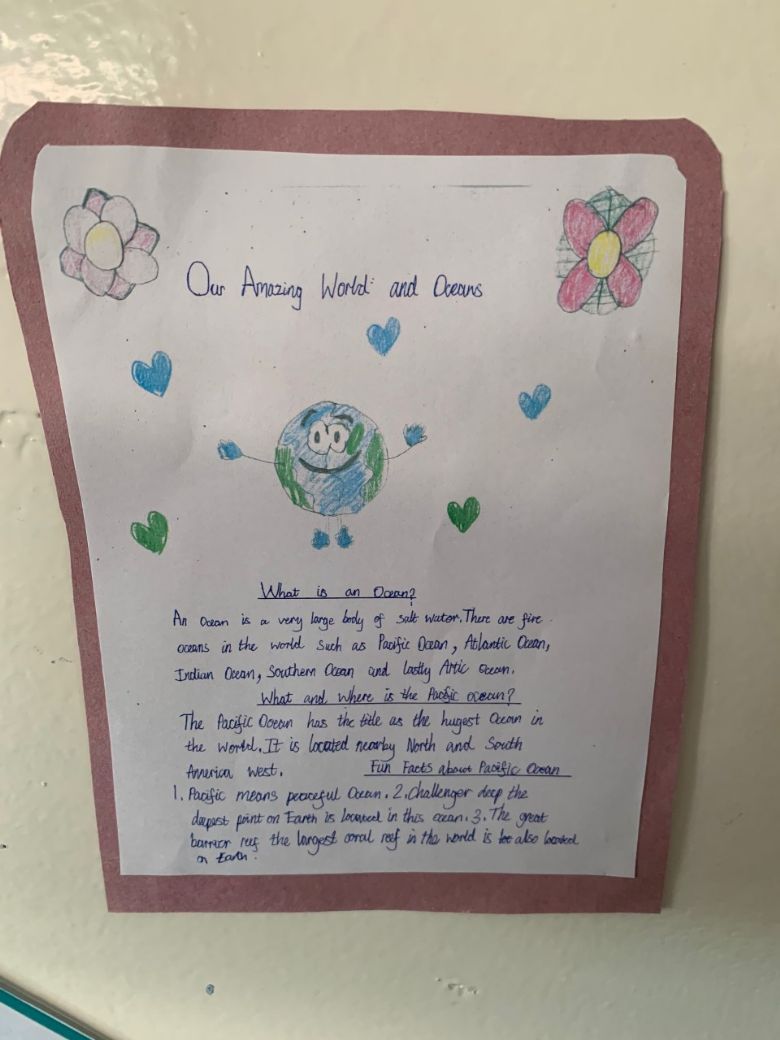 Our Amazing World and Oceans
What is an Ocean?
An Ocean is a very large body of salt water. There are five
oceans in the world such as Pacific Ocean, Atlantic Ocean,
Indian Ocean, Southern Ocean and lastly Artic Ocean.
What and where is the Pacific ocean?
The Pacific Ocean has the title as the hugest Ocean in
the world. It is located nearby North and South
America west.
Fun Facts about Pacific Ocean
1. Pacific means peaceful Ocean. 2. Challenger deep the
deepest point on Earth is located in this ocean. 3. The great
barrier reef the largest coral reef in the world is also located
on Earth.